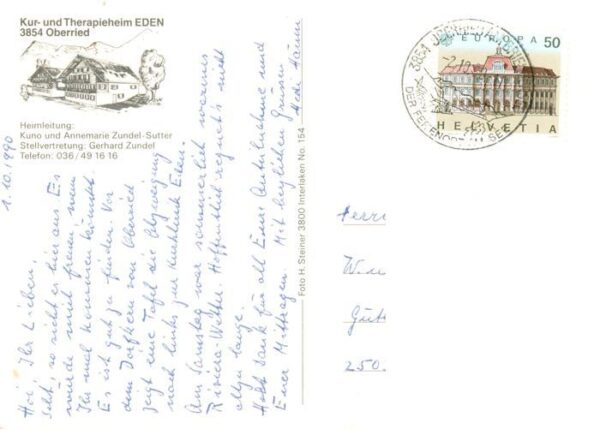 Kur- und Therapieheim EDEN
3854 Oberried
Heimleitung:
Kuno und Annemarie Zundel-Sutter
Stellvertretung: Gerhard Zundel
Telefon: 036/49 16 16
1.10.1990
Hoi, Ihr Lieben!
Seht, so sieht es hier aus. Es
würde mich freuen wenn
Ihr mal kommen könntet.
Es ist gut zu finden. Vor
dem Dorfkern von Oberried
zeigt eine Tafel die Abzweigung
nach links zur Kurklinik Eden.
Am Samstag war sommerlich warmes
Riviera-Wetter. Hoffentlich regnet's nicht
allzu lange.
Habt Dank für all Eure Anteilnahme und
Euer Mittragen. Mit herzlichen Grüssen
Foto H. Steiner 3800 Interlaken No. 154
EUROPA 50
HELVETIA
3854 OBERRIED
Herrn
250